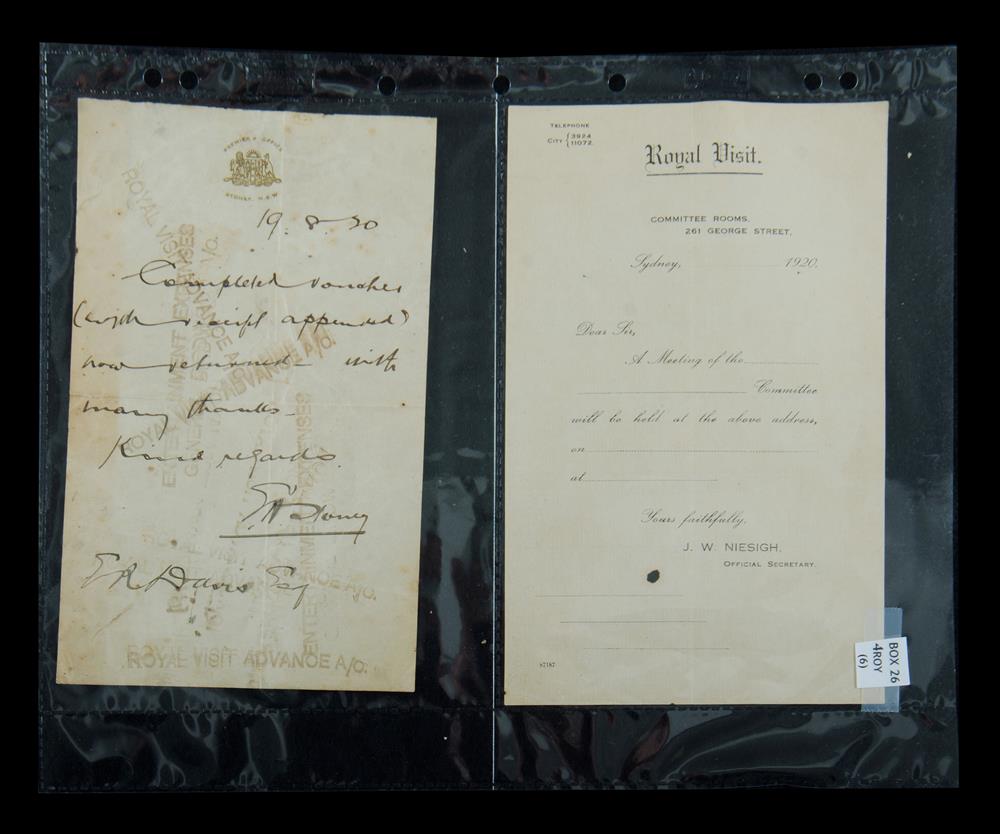 PREMIER'S OFFICE
SYDNEY, N.S.W.
19.8.20
Completed voucher
(with receipt appended)
now returned with
many thanks
Kind regards.
E R Davis Esq
ROYAL VISIT ADVANCE A/C.
ENTERTAINMENT EXPENSES
ADVANCE A/C.
ROYAL VISIT ADVANCE A/C.
TELEPHONE
CITY { 3924
11072.
Royal Visit.
COMMITTEE ROOMS,
261 GEORGE STREET,
Sydney, 1920.
Dear Sir,
A Meeting of the
Committee
will be held at the above address,
on
at
Yours faithfully,
J. W. NIESIGH,
OFFICIAL SECRETARY.
87187
BOX 26
4ROY
(6)